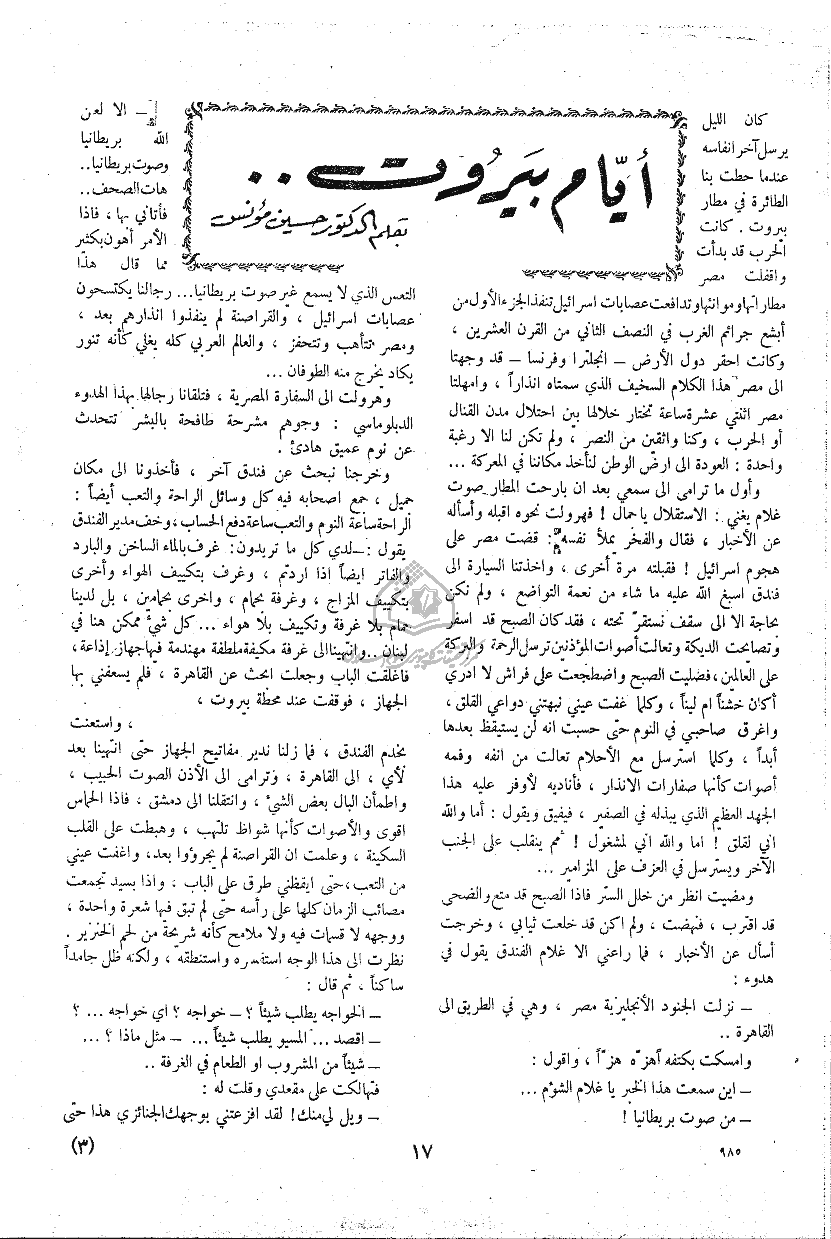 أيّام بيروت ..
بقلم الدكتور حسين مؤنس
كان الليل
يرسل آخر انفاسه
عندما حطت بنا
الطائرة في مطار
بيروت . كانت
الحرب قد بدأت
واقفلت مصر
مطاراتها وموانئها وتدافعت عصابات اسرائيل تنفذ الجزء الأول من
أبشع جرائم الغرب في النصف الثاني من القرن العشرين ،
وكانت احقر دول الأرض – انجلترا وفرنسا – قد وجهتا
الى مصر هذا الكلام السخيف الذي سمتاه انذاراً ، وامهلتا
مصر اثنتي عشرة ساعة تختار خلالها بين احتلال مدن القنال
أو الحرب ، وكنا واثقين من النصر ، ولم تكن لنا الا رغبة
واحدة : العودة الى ارض الوطن لنأخذ مكاننا في المعركة ...
وأول ما ترامى الى سمعي بعد ان بارحت المطار صوت
غلام يغني : الاستقلال يا جمال ! فهرولت نحوه اقبله وأسأله
عن الأخبار ، فقال والفخر يملأ نفسه : قضت مصر على
هجوم اسرائيل ! فقبلته مرة أخرى ، واخذتنا السيارة الى
فندق اسبغ الله عليه ما شاء من نعمة التواضع ، ولم نكن
بحاجة الا الى سقف نستقرّ تحته ، فقد كان الصبح قد اسفر
وتصايحت الديكة وتعالت أصوات المؤذنين ترسل الرحمة والبركة
على العالمين ، فصليت الصبح واضطجعت على فراش لا ادري
أكان خشناً ام ليناً ، وكلما غفت عيني نبهتني دواعي القلق ،
واغرق صاحبي في النوم حتى حسبت انه لن يستيقظ بعدها
أبداً ، وكلما استرسل مع الأحلام تعالت من انفه وفمه
أصوات كأنها صفارات الانذار ، فأناديه لأوفر عليه هذا
الجهد العظيم الذي يبذله في الصفير ، فيفيق ويقول : أما والله
اني لقلق ! اما والله اني لمشغول ! ثم ينقلب على الجنب
الآخر ويسترسل في العزف على المزامير ...
ومضيت انظر من خلل الستر فاذا الصبح قد متع والضحى
قد اقترب ، فنهضت ، ولم اكن قد خلعت ثيابي ، وخرجت
أسأل عن الأخبار ، فما راعني الا غلام الفندق يقول في
هدوء :
– نزلت الجنود الأنجليزية مصر ، وهي في الطريق الى
القاهرة ..
وامسكت بكتفه أهزّه هزّاً ، واقول :
– اين سمعت هذا الخبر يا غلام الشؤم ...
– من صوت بريطانيا !
– الا لعن
الله بريطانيا
وصوت بريطانيا ..
هات الصحف ..
فأتاني بها ، فاذا
الأمر أهون بكثير
مما قال هذا
التعس الذي لا يسمع غير صوت بريطانيا... رجالنا يكتسحون
عصابات اسرائيل ، والقراصنة لم ينفذوا انذارهم بعد ،
ومصر تتأهب وتتحفز ، والعالم العربي كله يغلي كأنه تنور
يكاد يخرج منه الطوفان ...
وهرولت الى السفارة المصرية ، فتلقانا رجالها بهذا الهدوء
الدبلوماسي : وجوهم مشرحة طافحة بالبشر تتحدث
عن نوم عميق هادئ .
وخرجنا نبحث عن فندق آخر ، فأخذونا الى مكان
جميل ، جمع اصحابه فيه كل وسائل الراحة والتعب أيضاً :
الراحة ساعة النوم والتعب ساعة دفع الحساب ، وخف مدير الفندق
يقول : – لدي كل ما تريدون: غرف بالماء الساخن والبارد
والفاتر ايضاً اذا اردتم ، وغرف بتكييف الهواء وأخرى
بتكييف المزاج ، وغرفة بحمام ، واخرى بحمامين ، بل لدينا
حمام بلا غرفة وتكييف بلا هواء ... كل شيء ممكن هنا في
لبنان .. وانتهينا الى غرفة مكيفة ملطفة مهندمة فيها جهاز إذاعة ،
فاغلقت الباب وجعلت ابحث عن القاهرة ، فلم يسعفني بها
الجهاز ، فوقفت عند محطة بيروت ،
، واستعنت
بخدم الفندق ، فما زلنا ندير مفاتيح الجهاز حتى انتهينا بعد
لأي ، الى القاهرة ، وترامى الى الأذن الصوت الحبيب ،
واطمأن البال بعض الشيء ، وانتقلنا الى دمشق ، فاذا الحماس
اقوى والأصوات كأنها شواظ تلتهب ، وهبطت على القلب
السكينة ، وعلمت ان القراصنة لم يجرؤوا بعد، واغفت عيني
من التعب، حتى ايقظني طرق على الباب ، واذا بسيد تجمعت
مصائب الزمان كلها على رأسه حتى لم تبق فيها شعرة واحدة ،
ووجهه لا قسمات فيه ولا ملامح كأنه شريحة من لحم الخنزير .
نظرت الى هذا الوجه استفسره واستنطقه ، ولكنه ظل جامداً
ساكناً ، ثم قال :
– الخواجه يطلب شيئاً ؟ – خواجه ؟ اي خواجه ... ؟
– اقصد ... المسيو يطلب شيئاً ... – مثل ماذا ؟ ...
– شيئاً من المشروب او الطعام في الغرفة ..
فتهالكت على مقعدي وقلت له :
– ويل لي منك! لقد افزعتني بوجهك الجنائزي هذا حتى
٩٨٥
١٧
(٣)